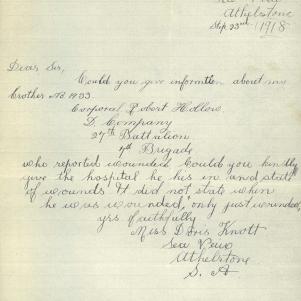 Sea View
Athelstone
Sep 23rd 1918
Dear Sir,
Could you give information about my
brother No 1933.
Corporal Robert Hollow
D. Company
27th Battalion
7th Brigade
who reported wounded Could you kindly
give the hospital he his in and state
of wounds It did not state when
he was wounded, only just wounded,
yrs. faithfully
Miss Doris Knott
Sea View
Athelstone
S. A